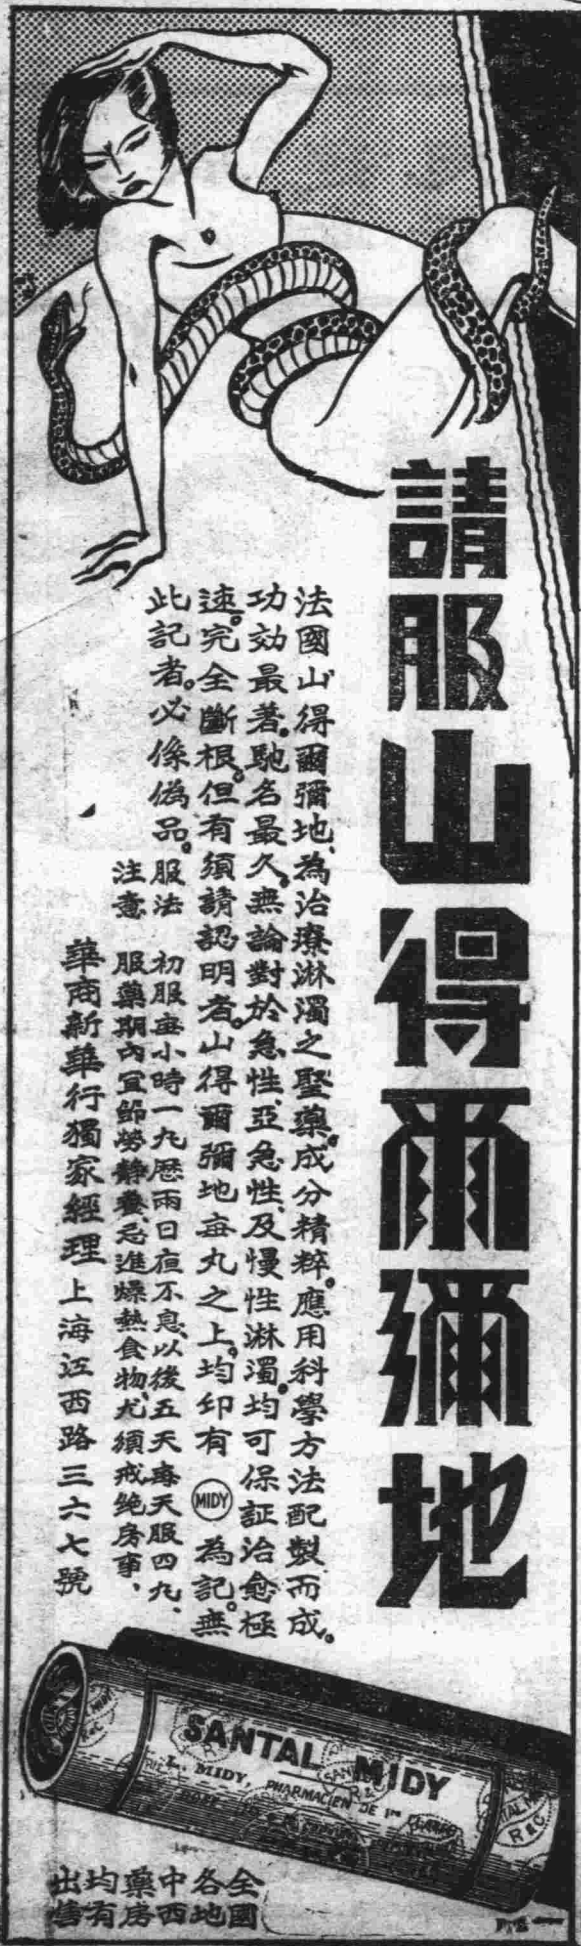 請服山得爾彌地
法國山得爾彌地、為治療淋濁之聖藥。成分精粹。應用科學方法配製而成。
功効最著。馳名最久。無論對於急性、亞急性、及慢性淋濁。均可保証治愈極
速。完全斷根。但有須請認明者。山得爾彌地每丸之上。均印有 MIDY 為記。無
此記者。必係偽品。
服法 初服每小時一丸歷兩日夜不息、以後五天每天服四丸、
注意 服藥期內宜節勞靜養、忌進燥熱食物、尤須戒絶房事、
華商新華行獨家經理 上海江西路三六七號
SANTAL MIDY
L. MIDY, PHARMACIEN DE 1re
R & C
全國
各地
中西
藥房
均有
出售